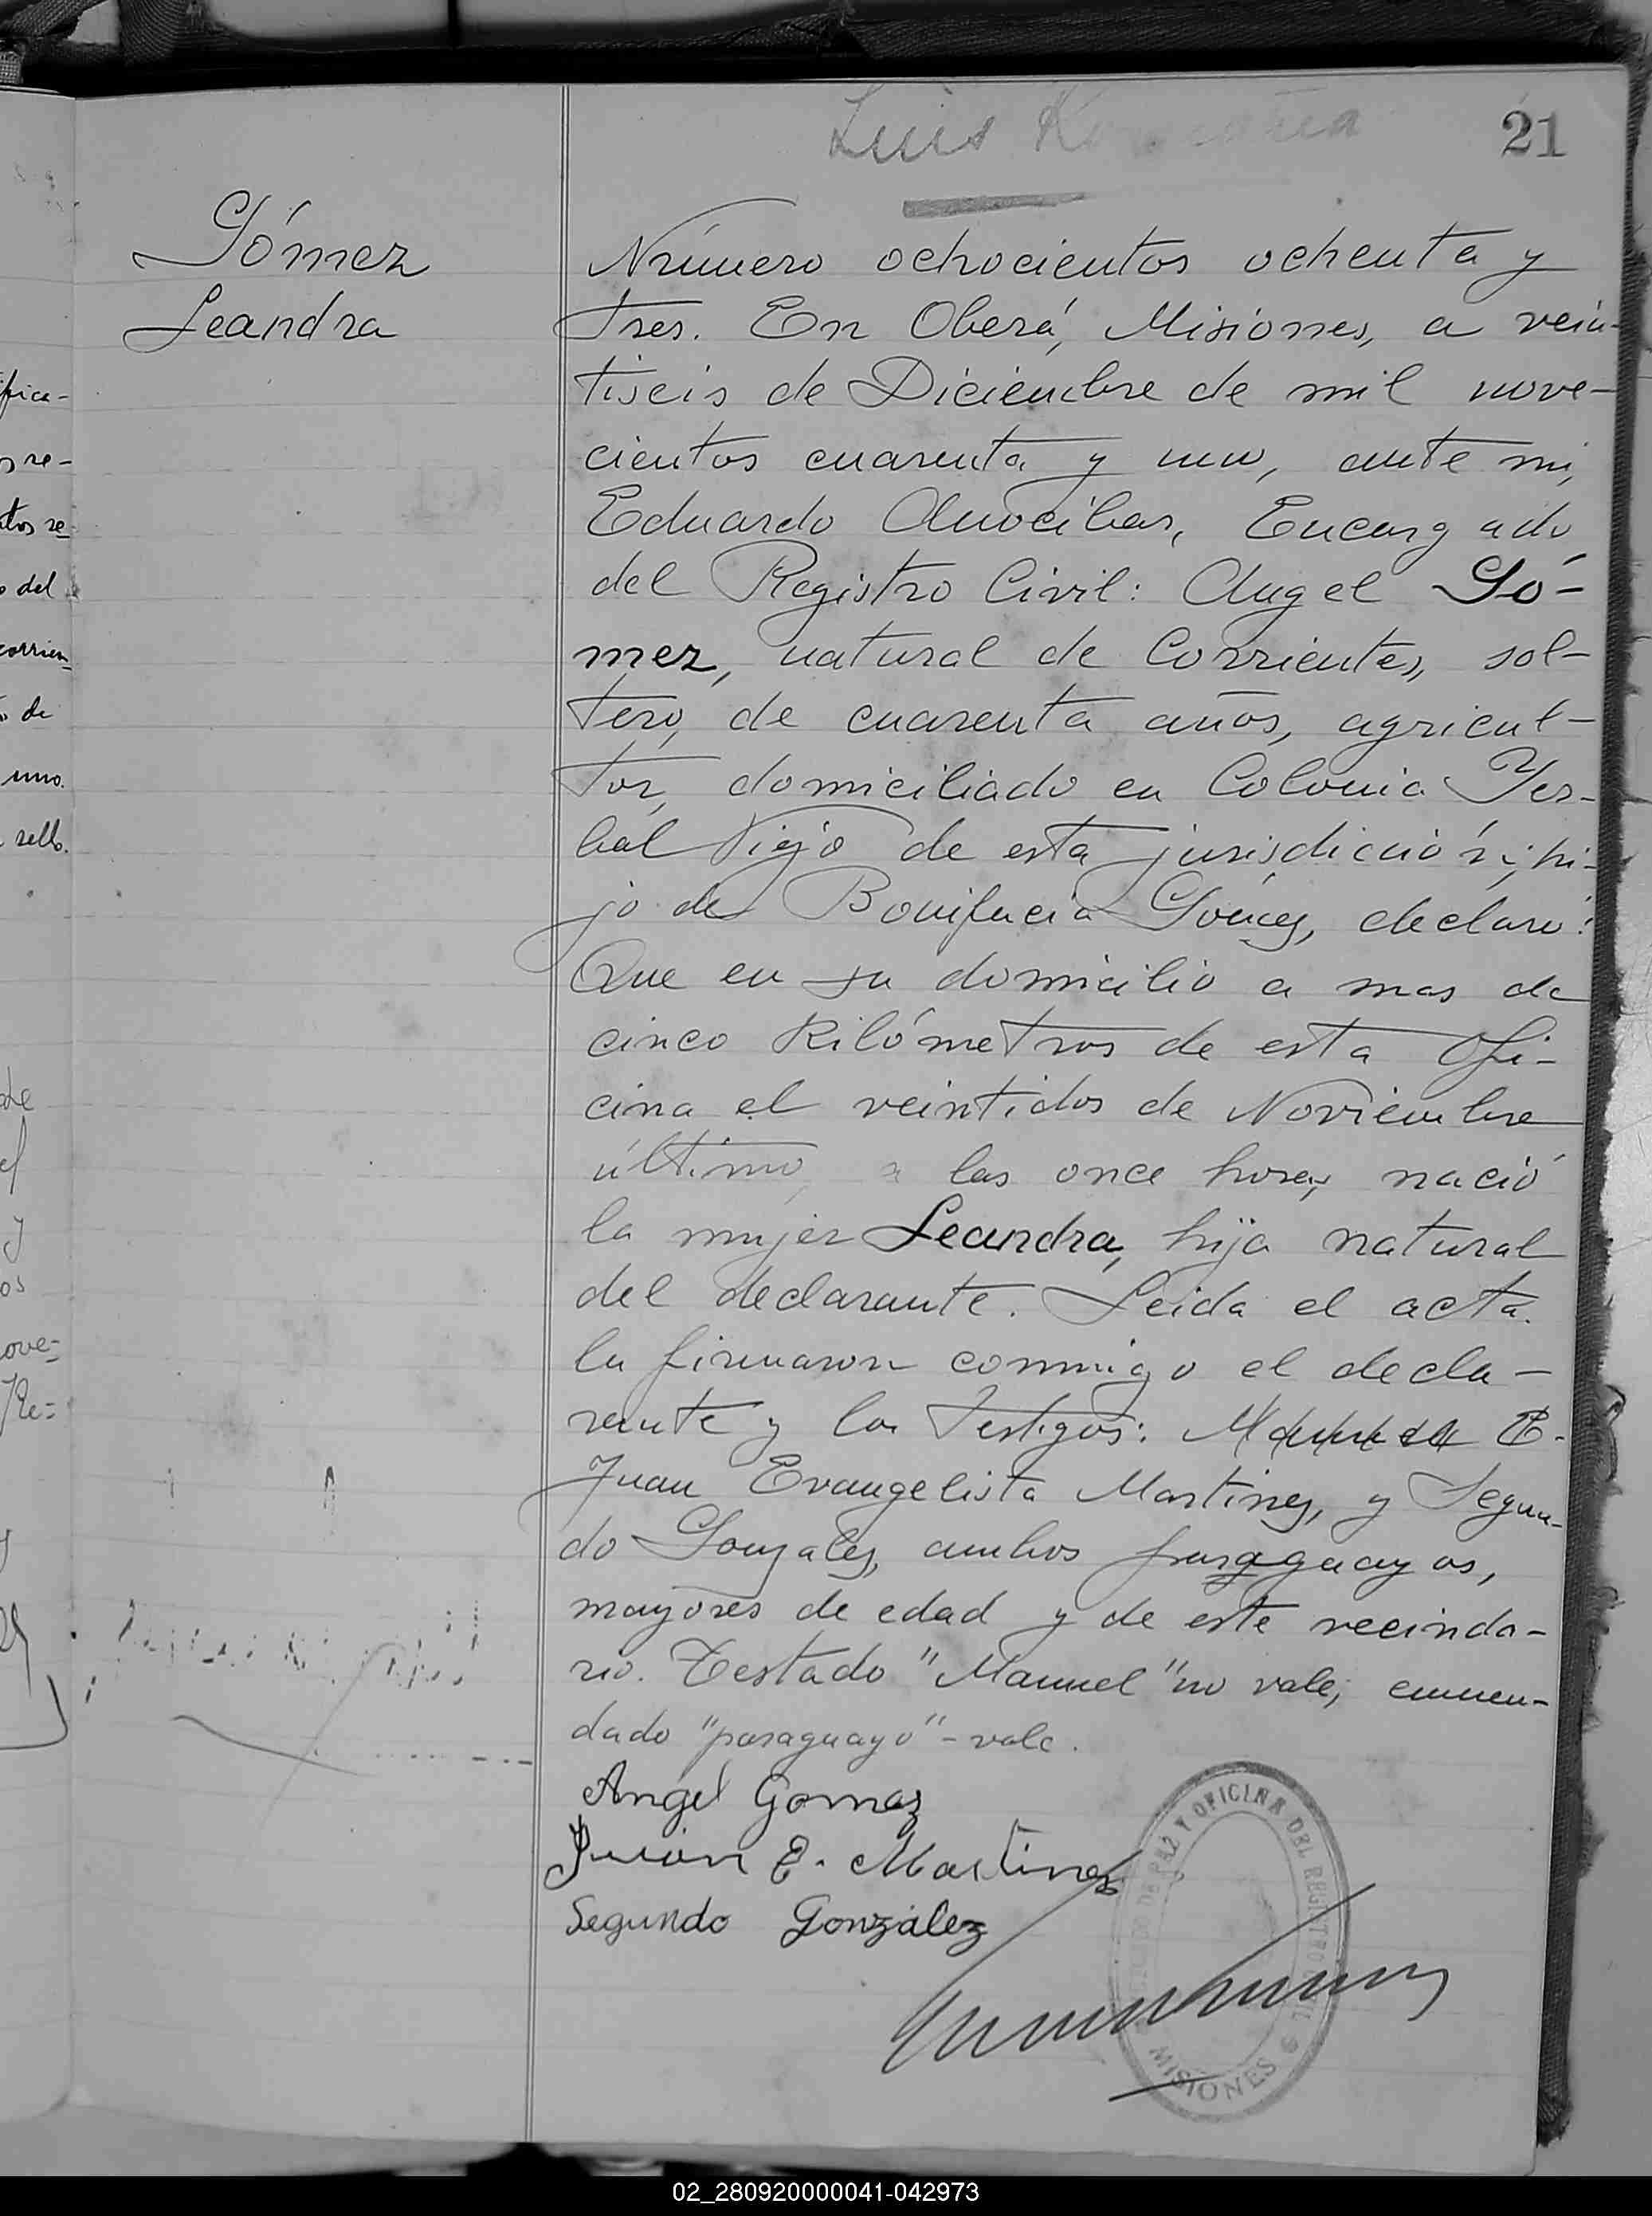 Luis
21
Gómez
Leandra
Número ochocientos ochenta y
tres. En Oberá, Misiones, a vein-
tiseis de Diciembre de mil nove-
cientos cuarenta y uno, ante mi,
Eduardo Anocibar, Encargado
del Registro Civil: Angel Gó-
mez, natural de Corrientes, sol-
tero, de cuarenta años, agricul-
tor, domiciliado en Colonia Yer-
bal Viejo de esta jurisdicción; hi-
jo de Bonifacia Gómez, declaró:
Que en su domicilio a mas de
cinco Kilómetros de esta Ofi-
cina el veintidos de Noviembre
último, a las once horas, nació
la mujer Leandra, hija natural
del declarante. Leida el acta.
la firmaron conmigo el decla-
rante y los Testigos: Manuel E.
Juan Evangelista Martinez, y Segun-
do Gonzalez, ambos paraguayos,
mayores de edad y de este vecinda-
rio. Testado "Manuel" no vale; enmen-
dado "paraguayo" - vale.
Angel Gomez
Juan E. Martinez
Segundo González
DE PAZ Y OFICINA DEL REGISTRO CIVIL
MISIONES
fica-
s re-
tos re-
o del
corrien-
o de
uno.
sello.
de
el
y
os
ove-
Re-
02_280920000041-042973